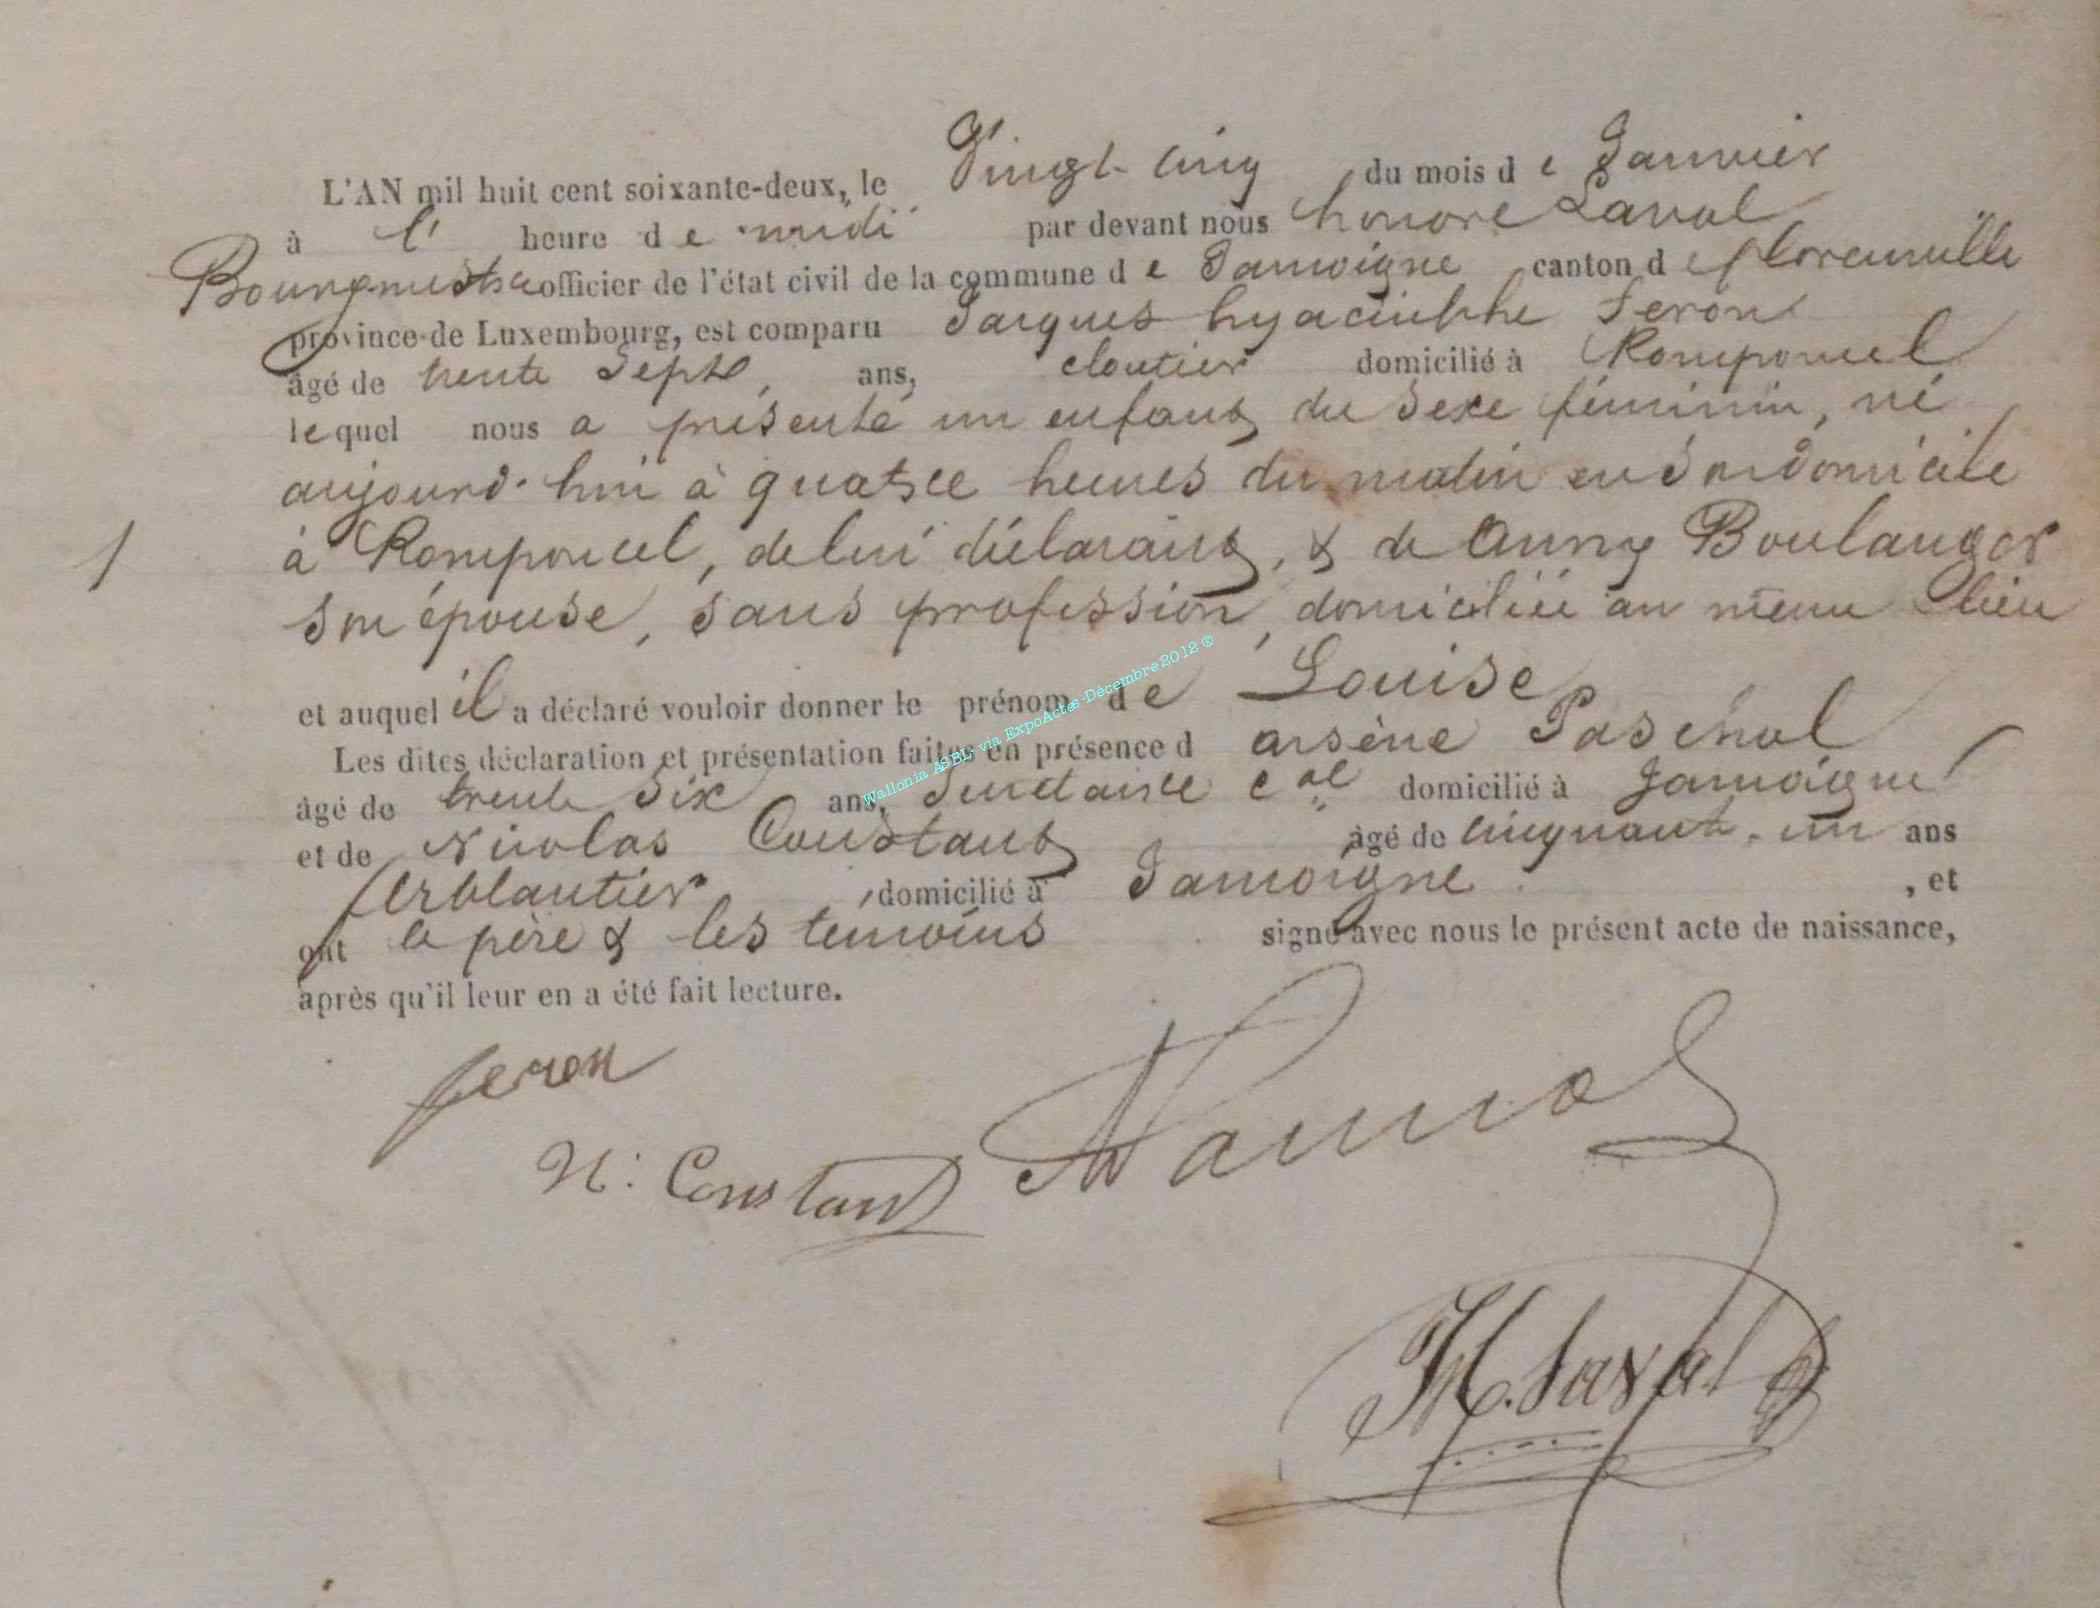 L'AN mil huit cent soixante-deux, le Vingt-cinq du mois de Janvier
à l' heure de midi par devant nous honoré Laval
Bourgmestre officier de l'état civil de la commune de Jamoigne canton de florenville
province de Luxembourg, est comparu Jacques hyacinthe feron
âgé de trente sept, ans, cloutier domicilié à Romponcel
lequel nous a présenté un enfant du sexe féminin, né
aujourd'hui à quatre heures du matin en son domicile
à Romponcel, de lui déclarant, & de Anny Boulanger
son épouse, sans profession, domiciliée au même lieu
et auquel il a déclaré vouloir donner le prénom de Louise
Les dites déclaration et présentation faites en présence d arsène Paschal
âgé de trente six ans, Secrétaire cal domicilié à Jamoigne
et de Nicolas Constant âgé de cinquante-un ans
ferblantier domicilié à Jamoigne , et
ont le père & les temoins signé avec nous le présent acte de naissance,
après qu'il leur en a été fait lecture.
feron
N: Constant
H. Laval
Wallonia ASBL via ExpoActes - Décembre 2012 ®